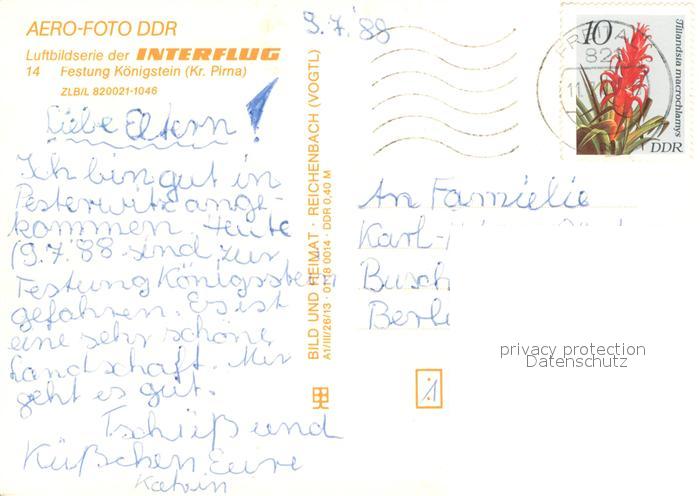 AERO-FOTO DDR
Luftbildserie der INTERFLUG
14 Festung Königstein (Kr. Pirna)
ZLB/L 820021-1046
9.7.'88
Liebe Eltern!
Ich bin gut in
Pesterwitz ange-
kommen. Heute
(9.7.'88 sind zur
Festung Königsstein
gefahren. Es ist
eine sehr schöne
Landschaft. Mir
geht es gut.
Tschüß und
Küßchen Eure
Katrin
BILD UND HEIMAT · REICHENBACH (VOGTL)
A1/III/26/13 · 01 18 0014 · DDR 0,40 M
10
Tillandsia macrochlamys
DDR
FREITAL
821
An Familie
Karl-
Busch
Berli
privacy protection
Datenschutz